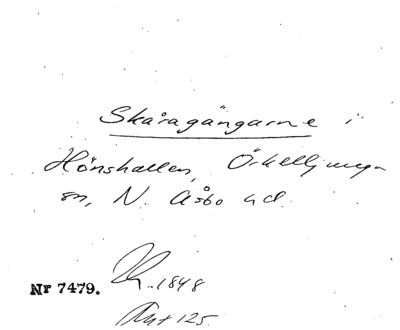 Skåragångarne i
Hönshallen, Örkelljunga
sn, N. Åsbo hd.
Nr 7479.
1848
125.